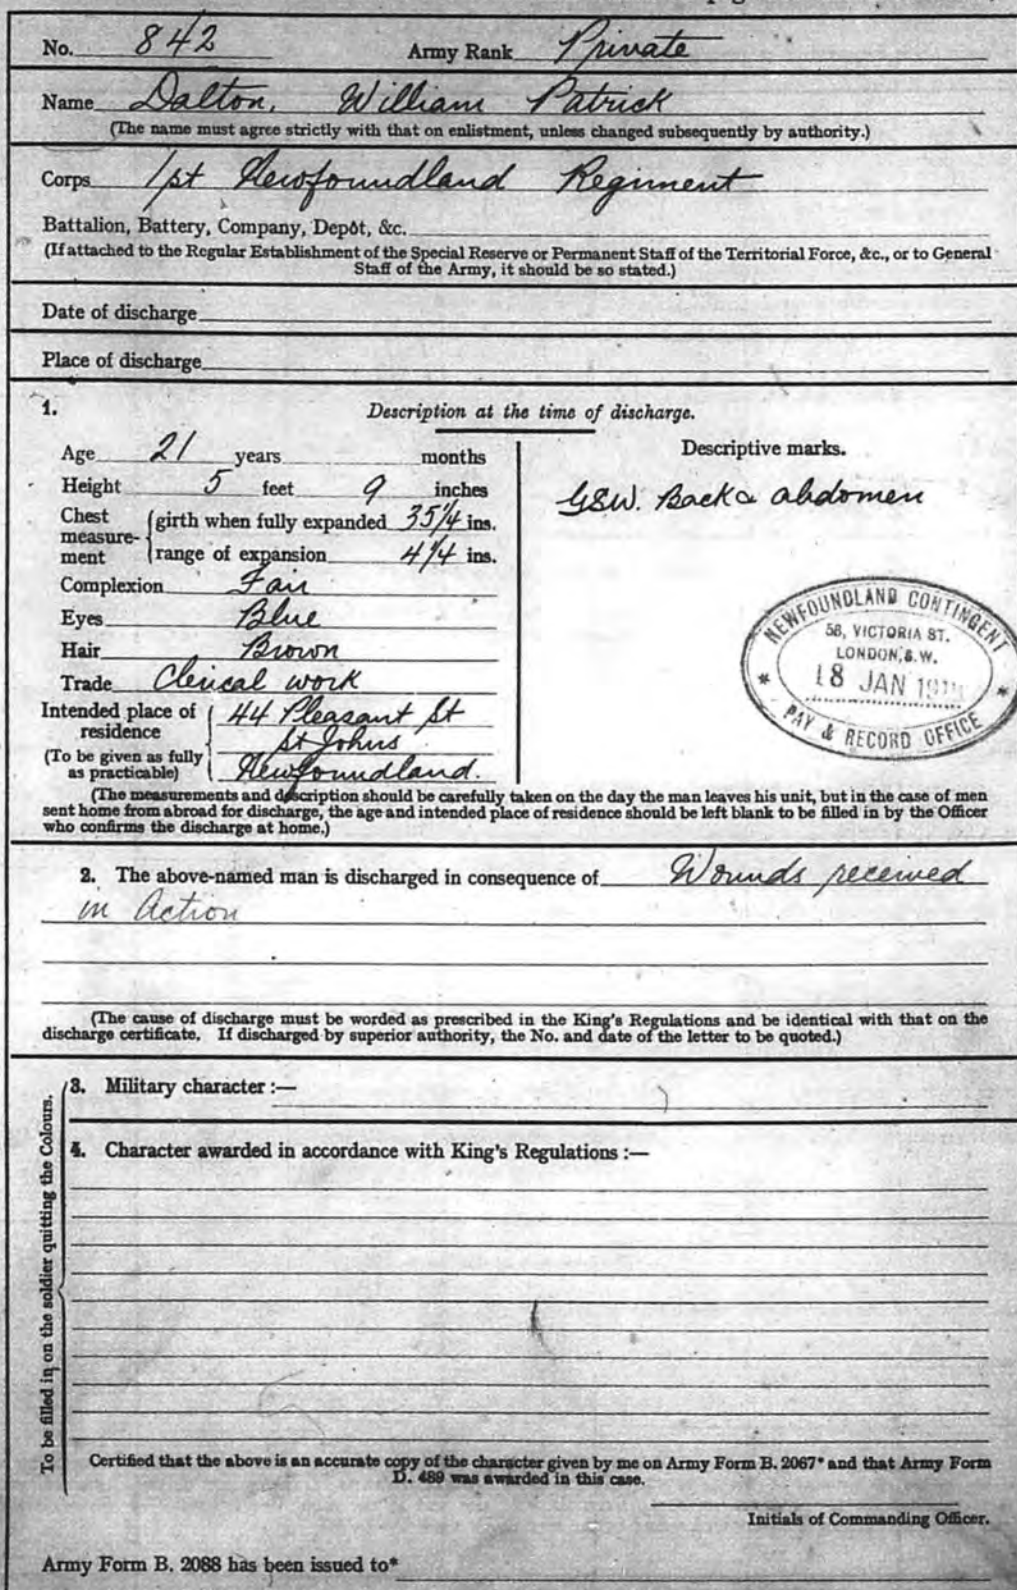 No. 842 Army Rank Private
Name Dalton, William Patrick
(The name must agree strictly with that on enlistment, unless changed subsequently by authority.)
Corps 1st Newfoundland Regiment
Battalion, Battery, Company, Depôt, &c.
(If attached to the Regular Establishment of the Special Reserve or Permanent Staff of the Territorial Force, &c., or to General
Staff of the Army, it should be so stated.)
Date of discharge
Place of discharge
1. Description at the time of discharge.
Age 21 years months
Height 5 feet 9 inches
Chest measurement girth when fully expanded 35 1/4 ins.
range of expansion 4 1/4 ins.
Complexion Fair
Eyes Blue
Hair Brown
Trade Clerical work
Intended place of residence 44 Pleasant St
St Johns
(To be given as fully as practicable) Newfoundland.
Descriptive marks.
GSW. Back & abdomen
NEWFOUNDLAND CONTINGENT
58, VICTORIA ST.
LONDON, S.W.
18 JAN
PAY & RECORD OFFICE
(The measurements and description should be carefully taken on the day the man leaves his unit, but in the case of men
sent home from abroad for discharge, the age and intended place of residence should be left blank to be filled in by the Officer
who confirms the discharge at home.)
2. The above-named man is discharged in consequence of Wounds received
in Action
(The cause of discharge must be worded as prescribed in the King's Regulations and be identical with that on the
discharge certificate. If discharged by superior authority, the No. and date of the letter to be quoted.)
To be filled in on the soldier quitting the Colours.
3. Military character :—
4. Character awarded in accordance with King's Regulations :—
Certified that the above is an accurate copy of the character given by me on Army Form B. 2067* and that Army Form
D. 489 was awarded in this case.
Initials of Commanding Officer.
Army Form B. 2088 has been issued to*